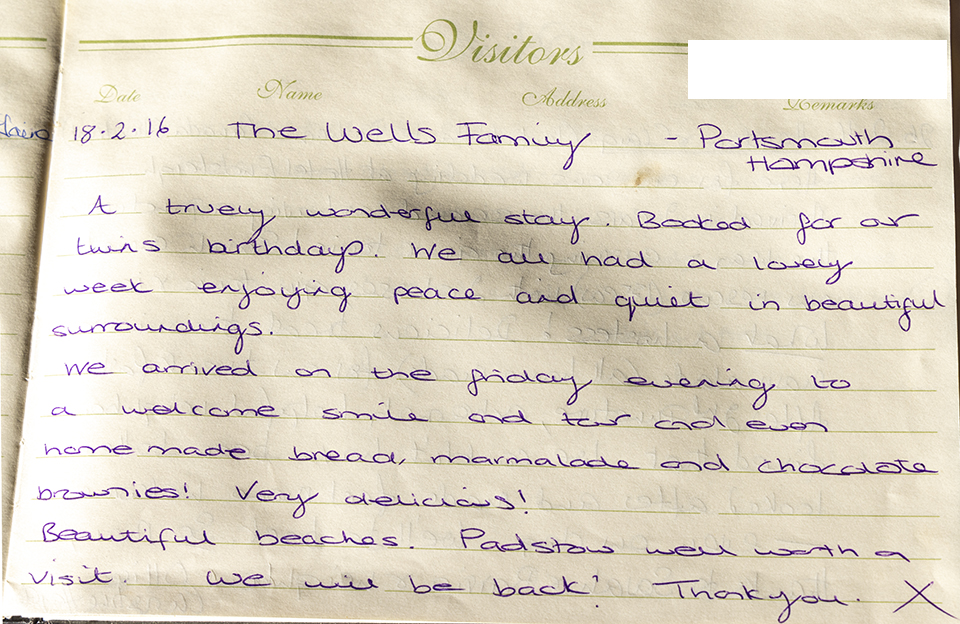 Visitors
Date Name Address Remarks
18.2.16 The Wells Family - Portsmouth
Hampshire
A truely wonderful stay. Booked for our
twins birthdays. We all had a lovely
week enjoying peace and quiet in beautiful
surroundings.
We arrived on the friday evening to
a welcome smile and tour and even
home made bread, marmalade and chocolate
brownies! Very delicious!
Beautiful beaches. Padstow well worth a
visit. We will be back! Thankyou. X